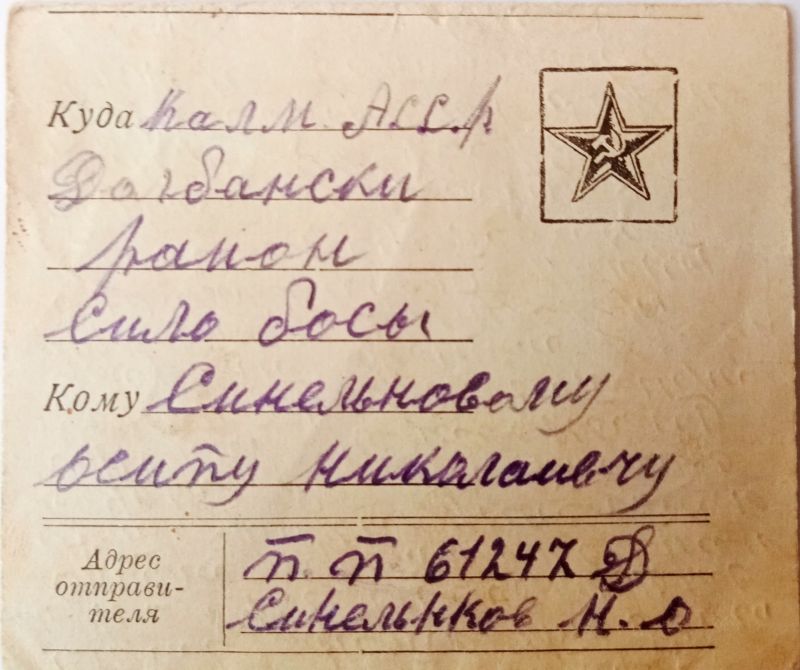 Куда Калм АССр
Догбански
раион
Сило босы
Кому Синельновому
осипу Николаиевичу
Адрес
отправи-
теля
п. п 61247 Д
Синельнков Н. О